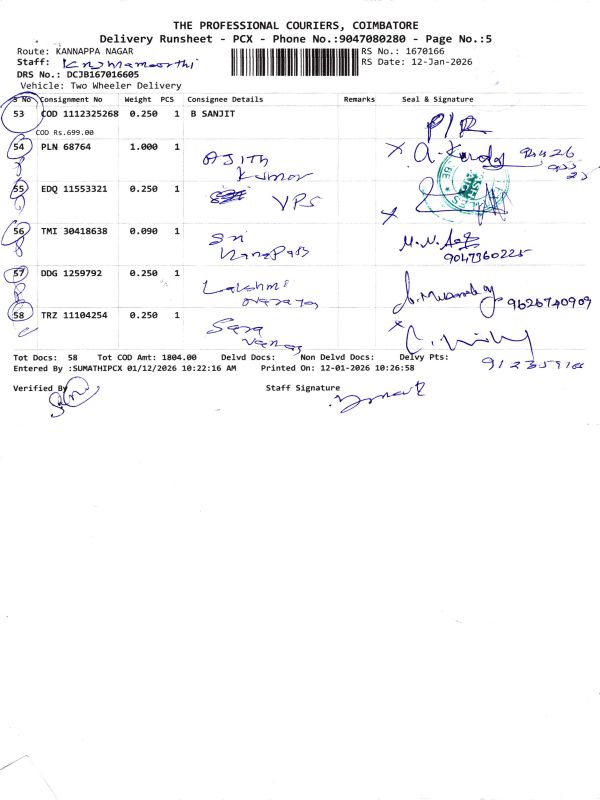 THE PROFESSIONAL COURIERS, COIMBATORE
Delivery Runsheet - PCX - Phone No.:9047080280 - Page No.:5
Route: KANNAPPA NAGAR RS No.: 1670166
Staff: RS Date: 12-Jan-2026
DRS No.: DCJB167016605
Vehicle: Two Wheeler Delivery
S No Consignment No Weight PCS Consignee Details Remarks Seal & Signature
53 COD 1112325268 0.250 1 B SANJIT P/R
COD Rs.699.00
54 PLN 68764 1.000 1 AJITH Kumar
55 EDQ 11553321 0.250 1 VPS
56 TMI 30418638 0.090 1 Sri
9047360225
57 DDG 1259792 0.250 1 Lakshmi
9626740909
58 TRZ 11104254 0.250 1
Tot Docs: 58 Tot COD Amt: 1804.00 Delvd Docs: Non Delvd Docs: Delvy Pts:
Entered By :SUMATHIPCX 01/12/2026 10:22:16 AM Printed On: 12-01-2026 10:26:58
Verified By Staff Signature